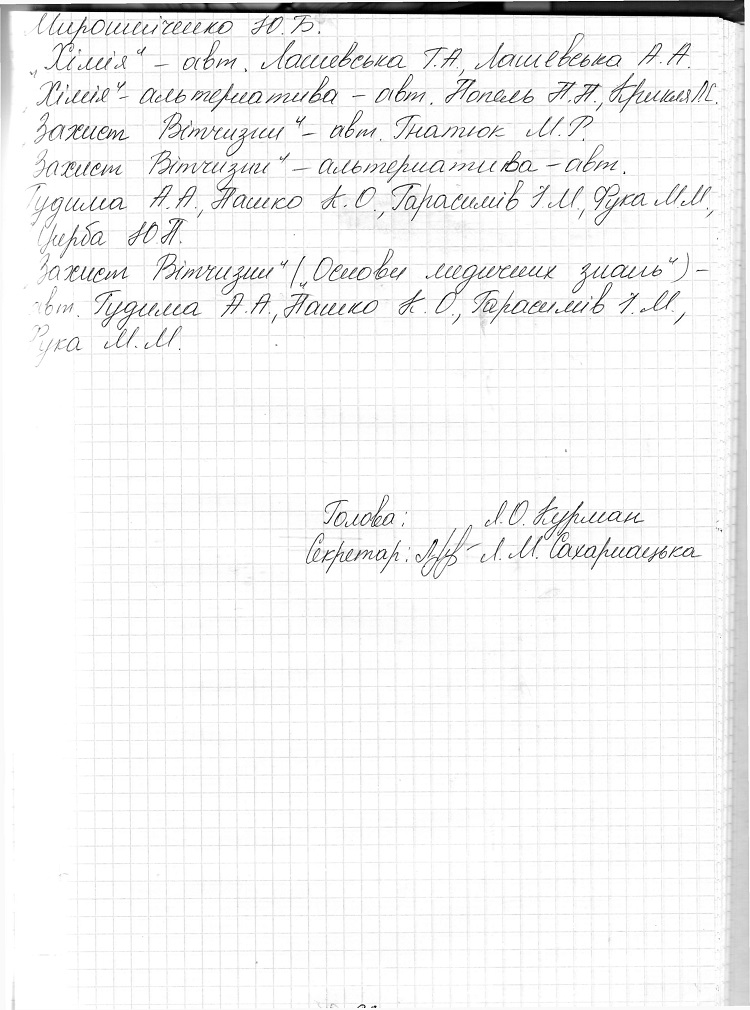 Мирошніченко Ю.Б.
„Хімія“ – авт. Лашевська Г.А., Лашевська А.А.
„Хімія“ – альтернатива – авт. Попель П.П., Крикля Л.С.
„Захист Вітчизни“ – авт. Гнатюк М.Р.
„Захист Вітчизни“ – альтернатива – авт.
Гудима А.А., Пашко К.О., Гарасимів І.М., Фука М.М.,
Щерба Ю.П.
„Захист Вітчизни“ („Основи медичних знань“) –
авт. Гудима А.А., Пашко К.О., Гарасимів І.М.,
Фука М.М.
Голова: Л.О. Курман
Секретар: Л.М. Сахарнацька